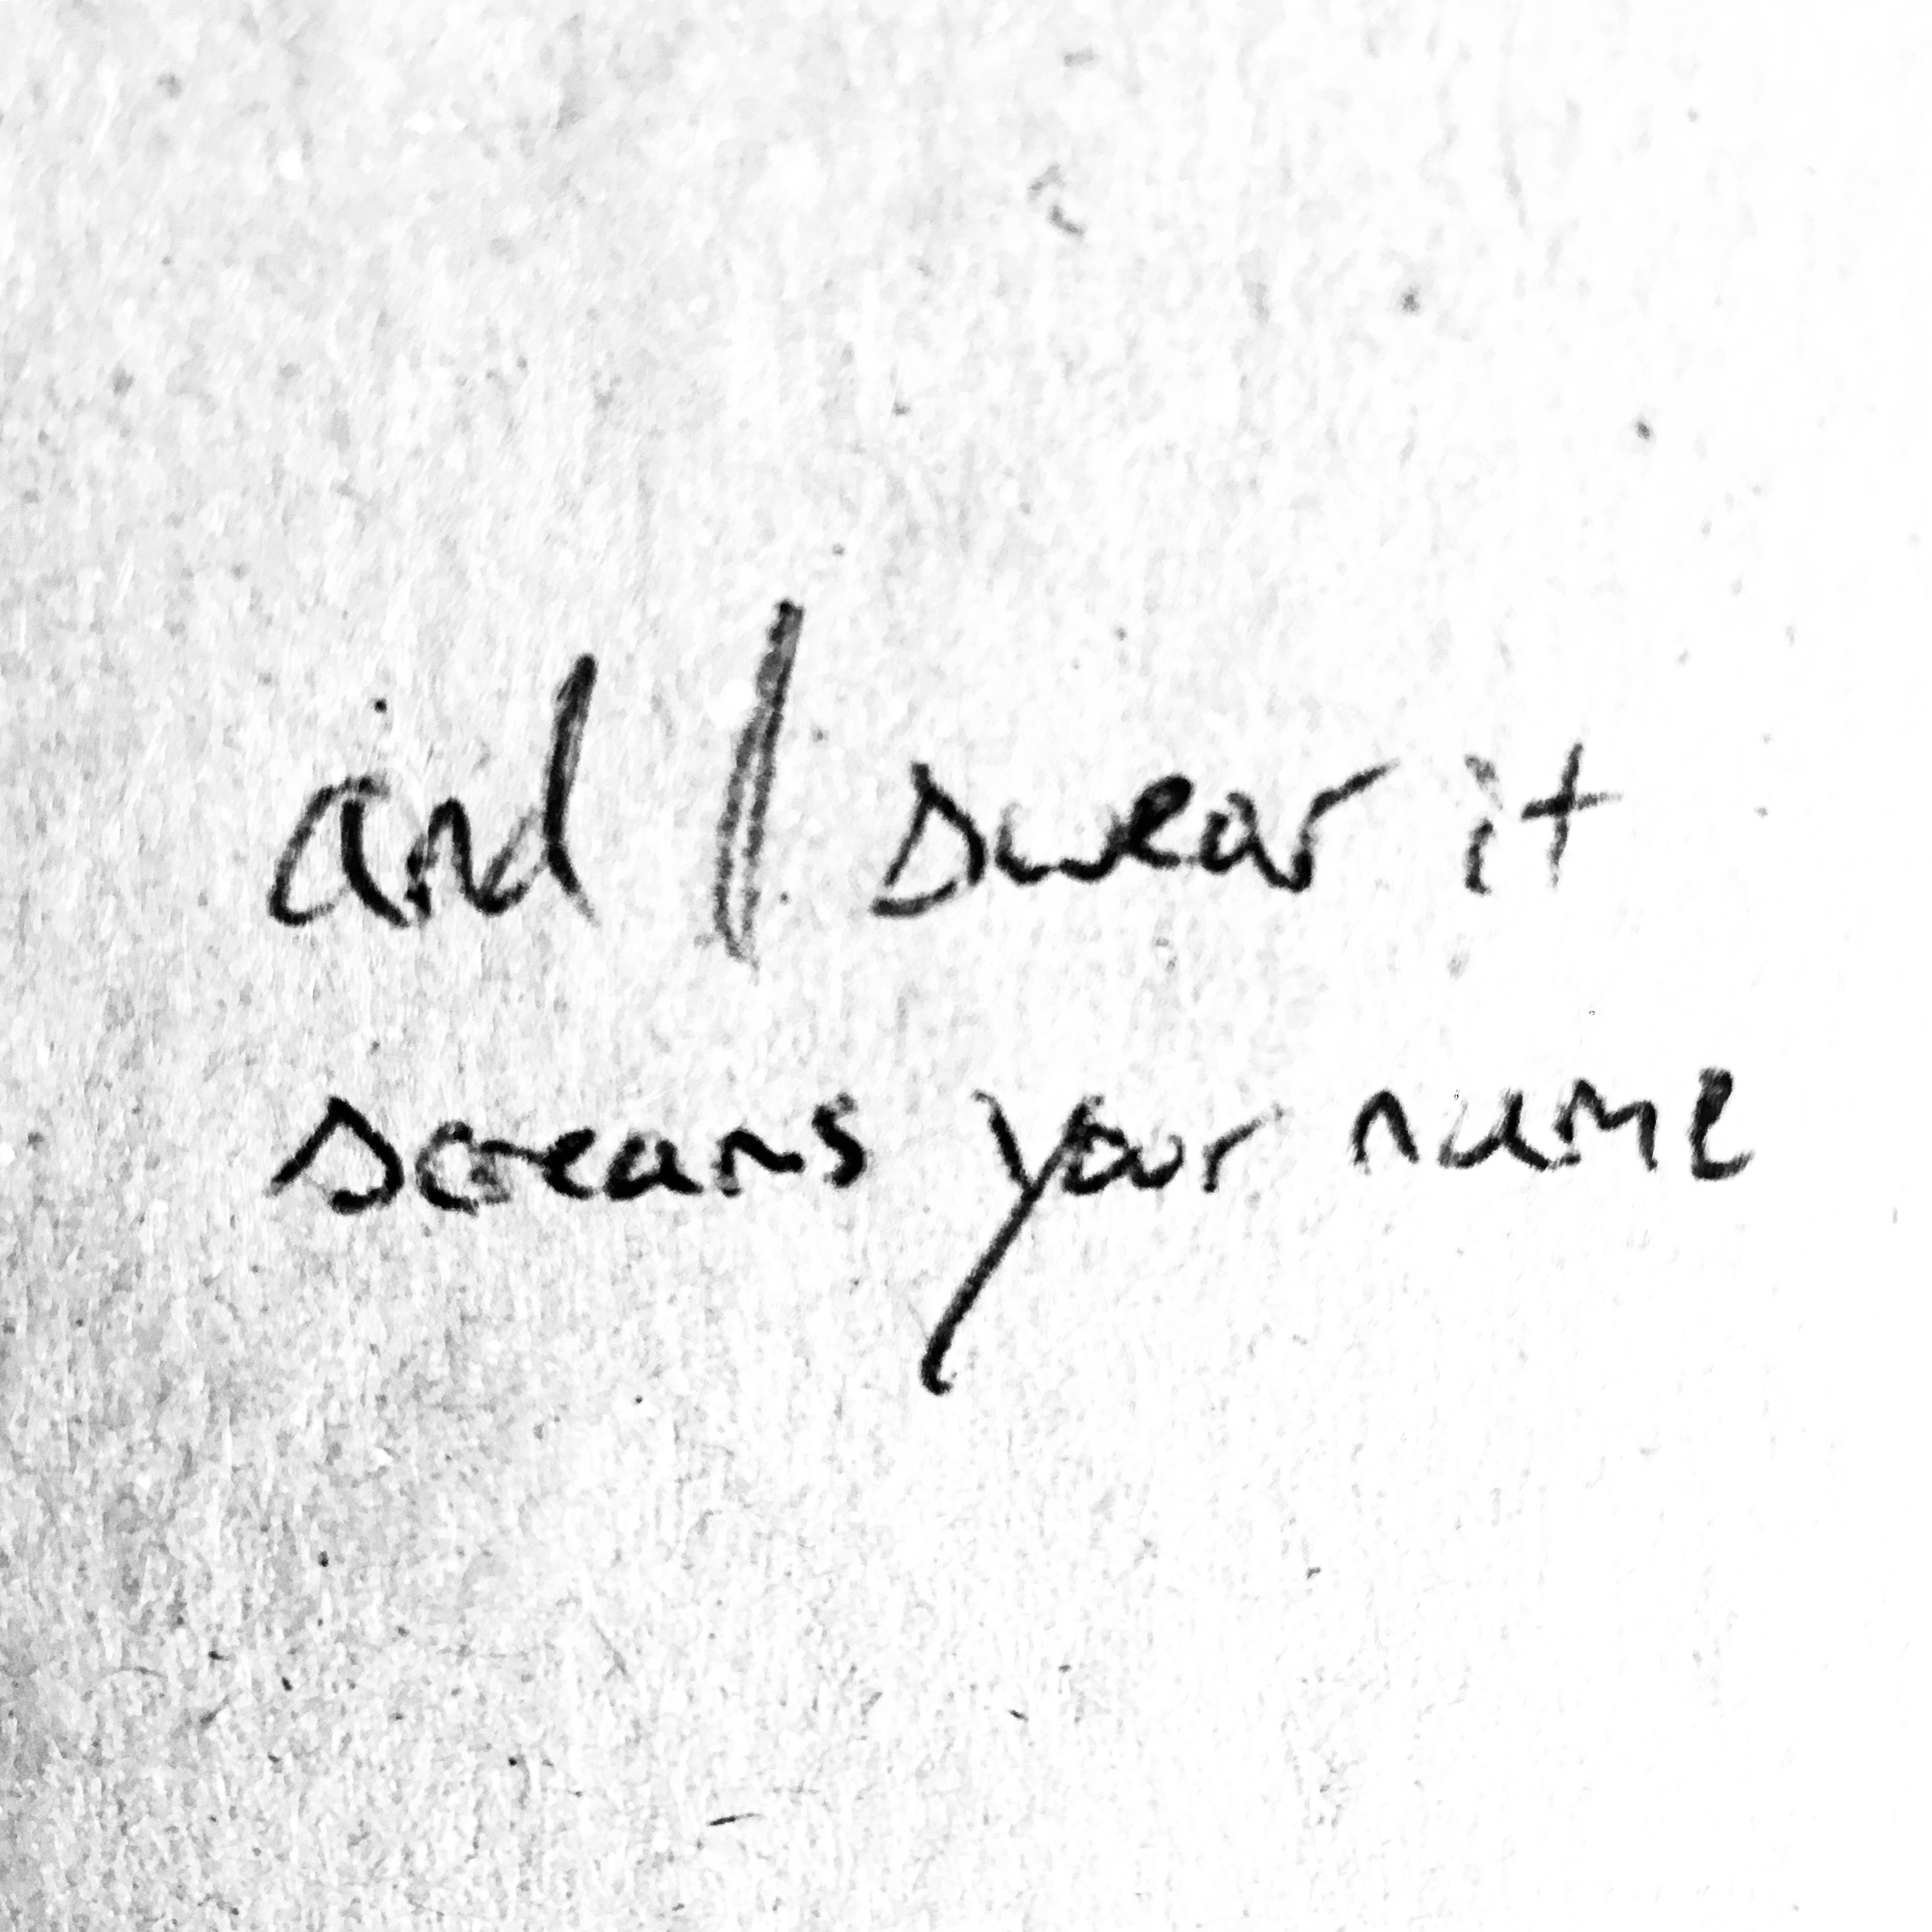 and I swear it
screams your name